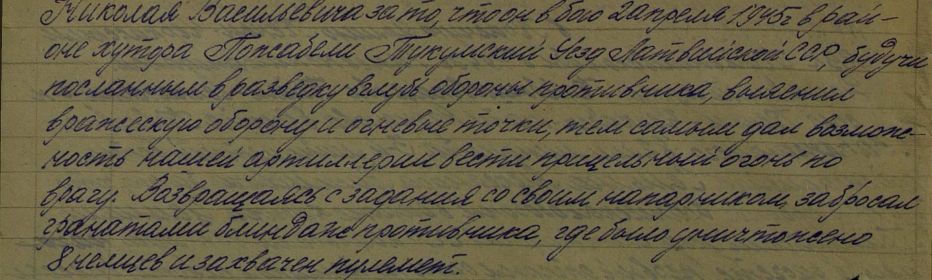 Николая Васильевича за то, что он в бою 2 апреля 1945г в рай-
оне хутора Попсабели Тукумский Уезд Латвийской ССР, будучи
посланным в разведку вглубь обороны противника, выяснил
вражескую оборону и огневые точки, тем самым дал возмож-
ность нашей артиллерии вести прицельный огонь по
врагу. Возвращаясь с задания со своим напарником, забросал
гранатами блиндаж противника, где было уничтожено
8 немцев и захвачен пулемет.